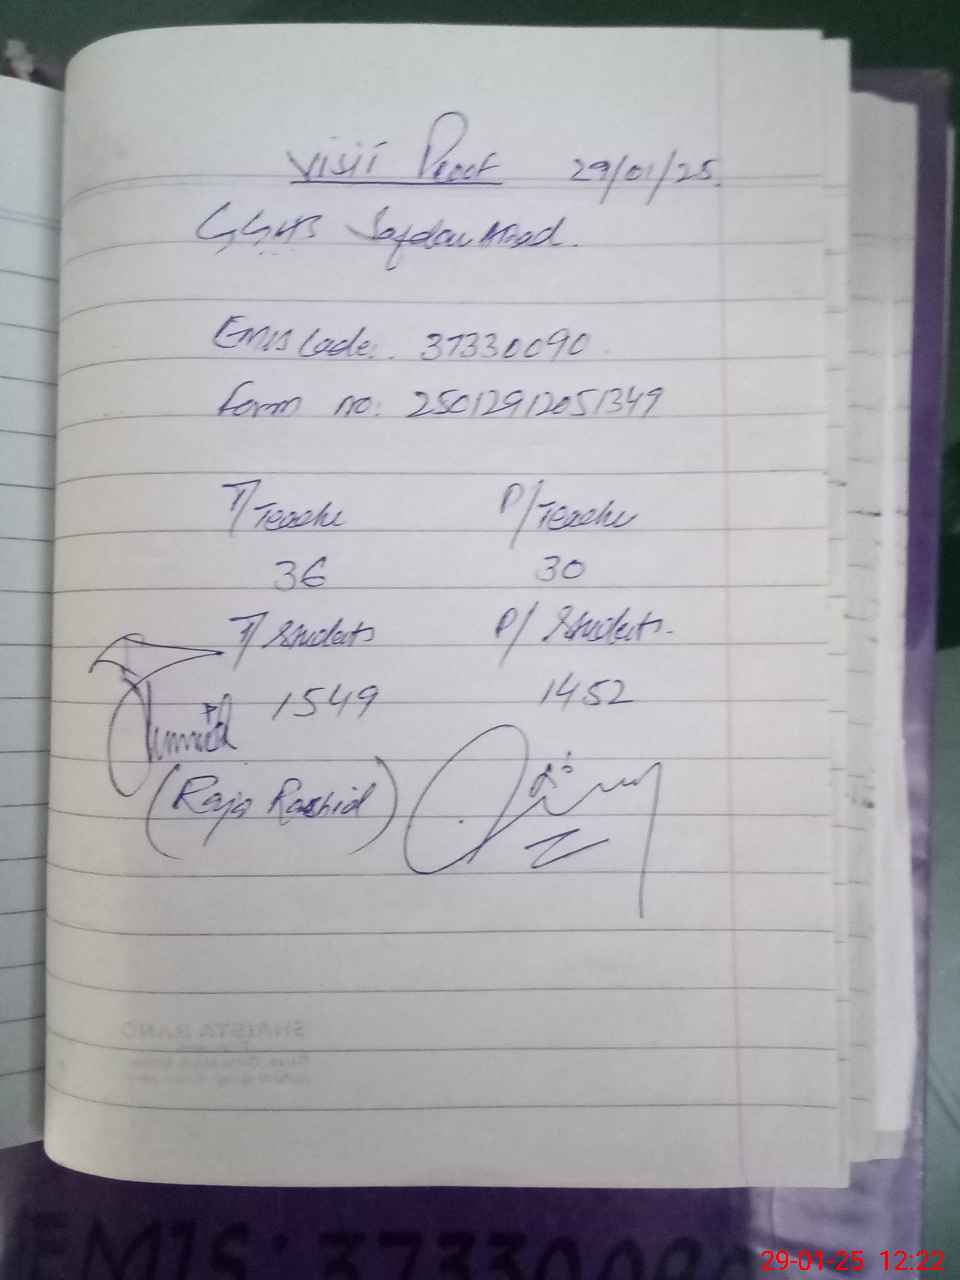 Visit Proof 29/01/25.
GGHS Safdar Abad.
EMIS Code: 37330090
Form no: 25012912051349
T/Teache P/Teache
36 30
T/Students P/Students.
1549 1452
(Raja Rashid)
SHAISTA BANO
EMIS: 37330090
29-01-25 12:22